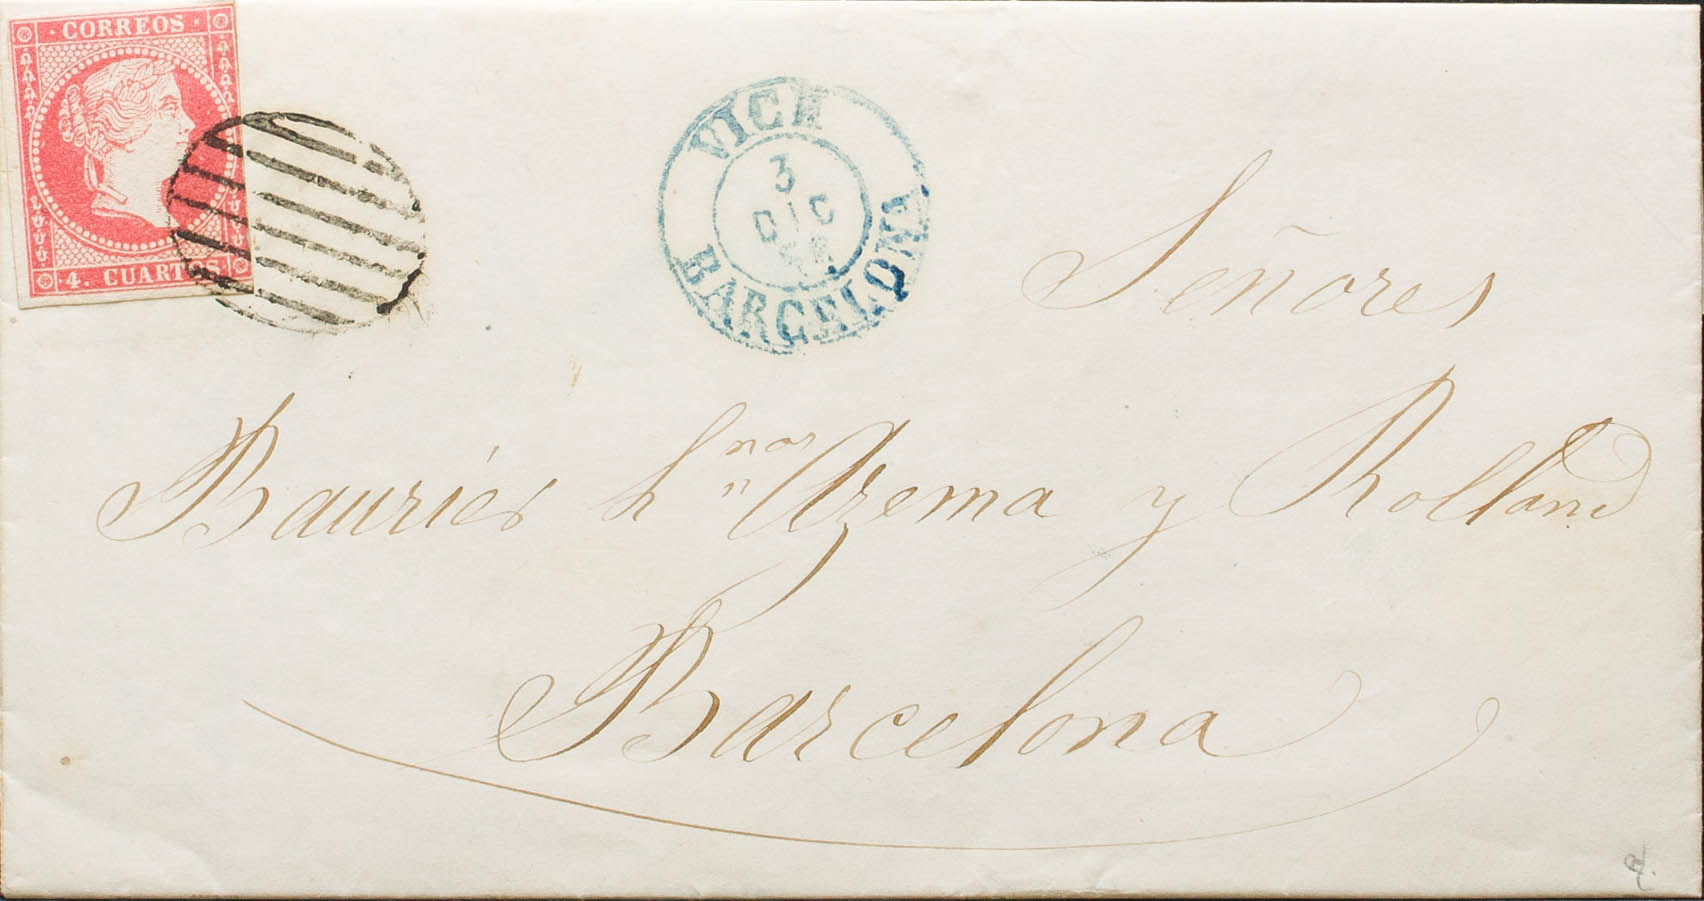 CORREOS
4. CUARTOS
VICH
3
DIC
BARCELONA
Señores
Bauriér hnos Azema y Rolland
Barcelona